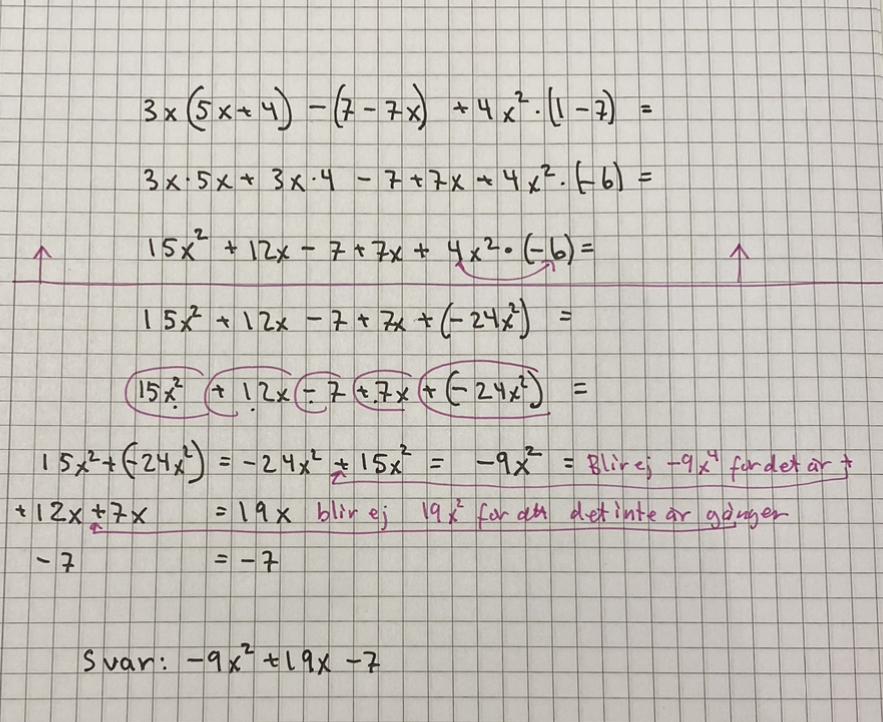 3x(5x+4) -(7-7x) +4x²·(1-7) =
3x·5x+ 3x·4 - 7+7x + 4x²·(-6) =
15x² +12x - 7+7x + 4x²·(-6)=
15x² +12x - 7 + 7x +(-24x²) =
15x² + 12x - 7 + 7x + (-24x²) =
15x²+(-24x²) = -24x² + 15x² = -9x² = Blir ej -9x⁴ for det är +
+12x+7x = 19x blir ej 19x² for att det inte är gånger
-7 = -7
Svar: -9x² +19x -7